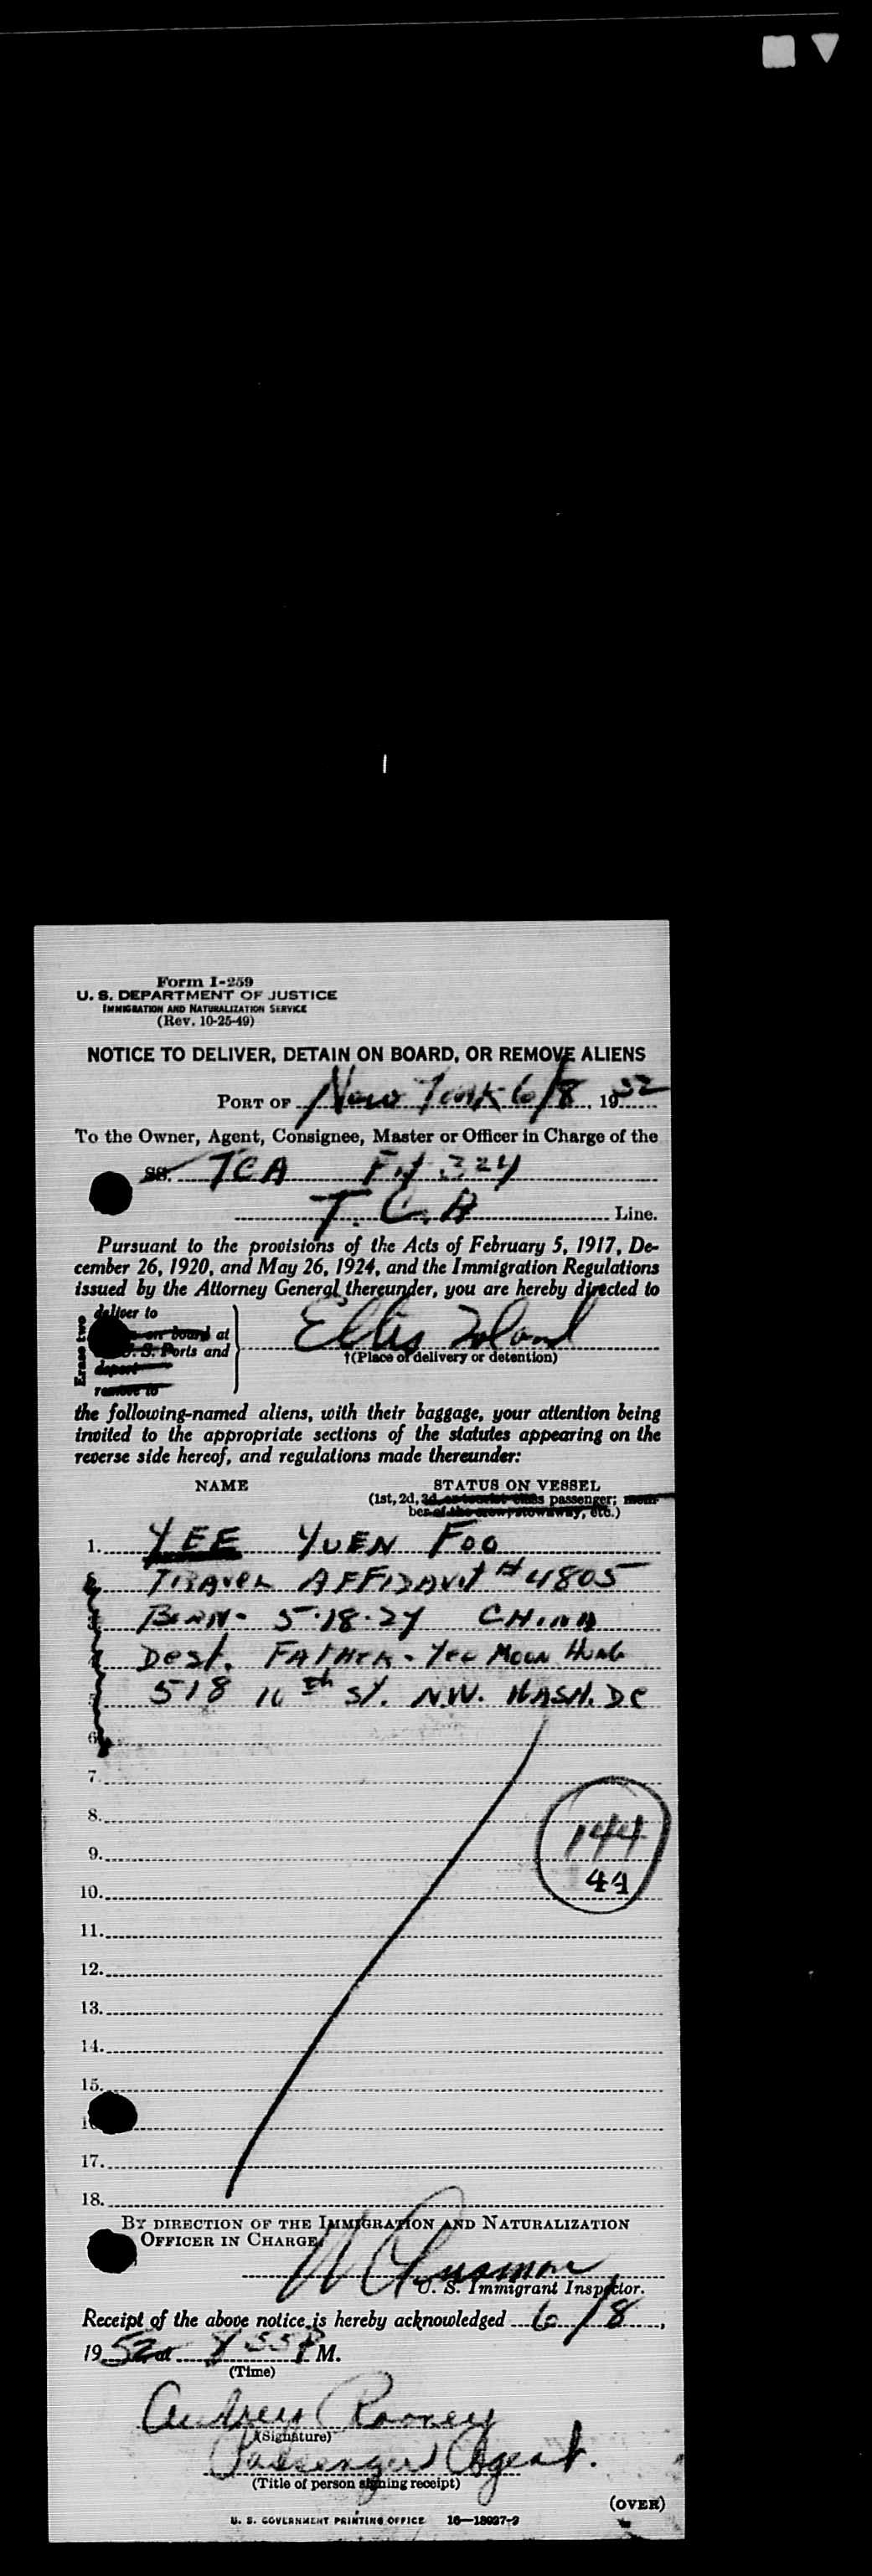 Form I-259
U. S. DEPARTMENT OF JUSTICE
IMMIGRATION AND NATURALIZATION SERVICE
(Rev. 10-25-49)
NOTICE TO DELIVER, DETAIN ON BOARD, OR REMOVE ALIENS
PORT OF New York 6/8, 1952
To the Owner, Agent, Consignee, Master or Officer in Charge of the
SS. TCA Flt 324
T.C.A Line.
Pursuant to the provisions of the Acts of February 5, 1917, De-
cember 26, 1920, and May 26, 1924, and the Immigration Regulations
issued by the Attorney General thereunder, you are hereby directed to
Erase two
deliver to
on board at
U. S. Ports and
deport
remove to
Ellis Island
†(Place of delivery or detention)
the following-named aliens, with their baggage, your attention being
invited to the appropriate sections of the statutes appearing on the
reverse side hereof, and regulations made thereunder:
NAME STATUS ON VESSEL
(1st, 2d, 3d, or tourist class passenger; mem-
ber of the crew, stowaway, etc.)
1. YEE YUEN FOO
TRAVEL AFFIDAVIT # 4805
BORN- 5.18.24 CHINA
Dest. FATHER - Yee MOON HUNG
518 10th St. N.W. WASH. DC
6
7.
8.
144
9.
44
10.
11.
12.
13.
14.
15.
17.
18.
BY DIRECTION OF THE IMMIGRATION AND NATURALIZATION
OFFICER IN CHARGE
U. S. Immigrant Inspector.
Receipt of the above notice is hereby acknowledged 6/8,
1952 at 55 P M.
(Time)
Audrey Rooney
(Signature)
Passenger Agent.
(Title of person signing receipt)
(OVER)
U. S. GOVERNMENT PRINTING OFFICE 16—18027-2